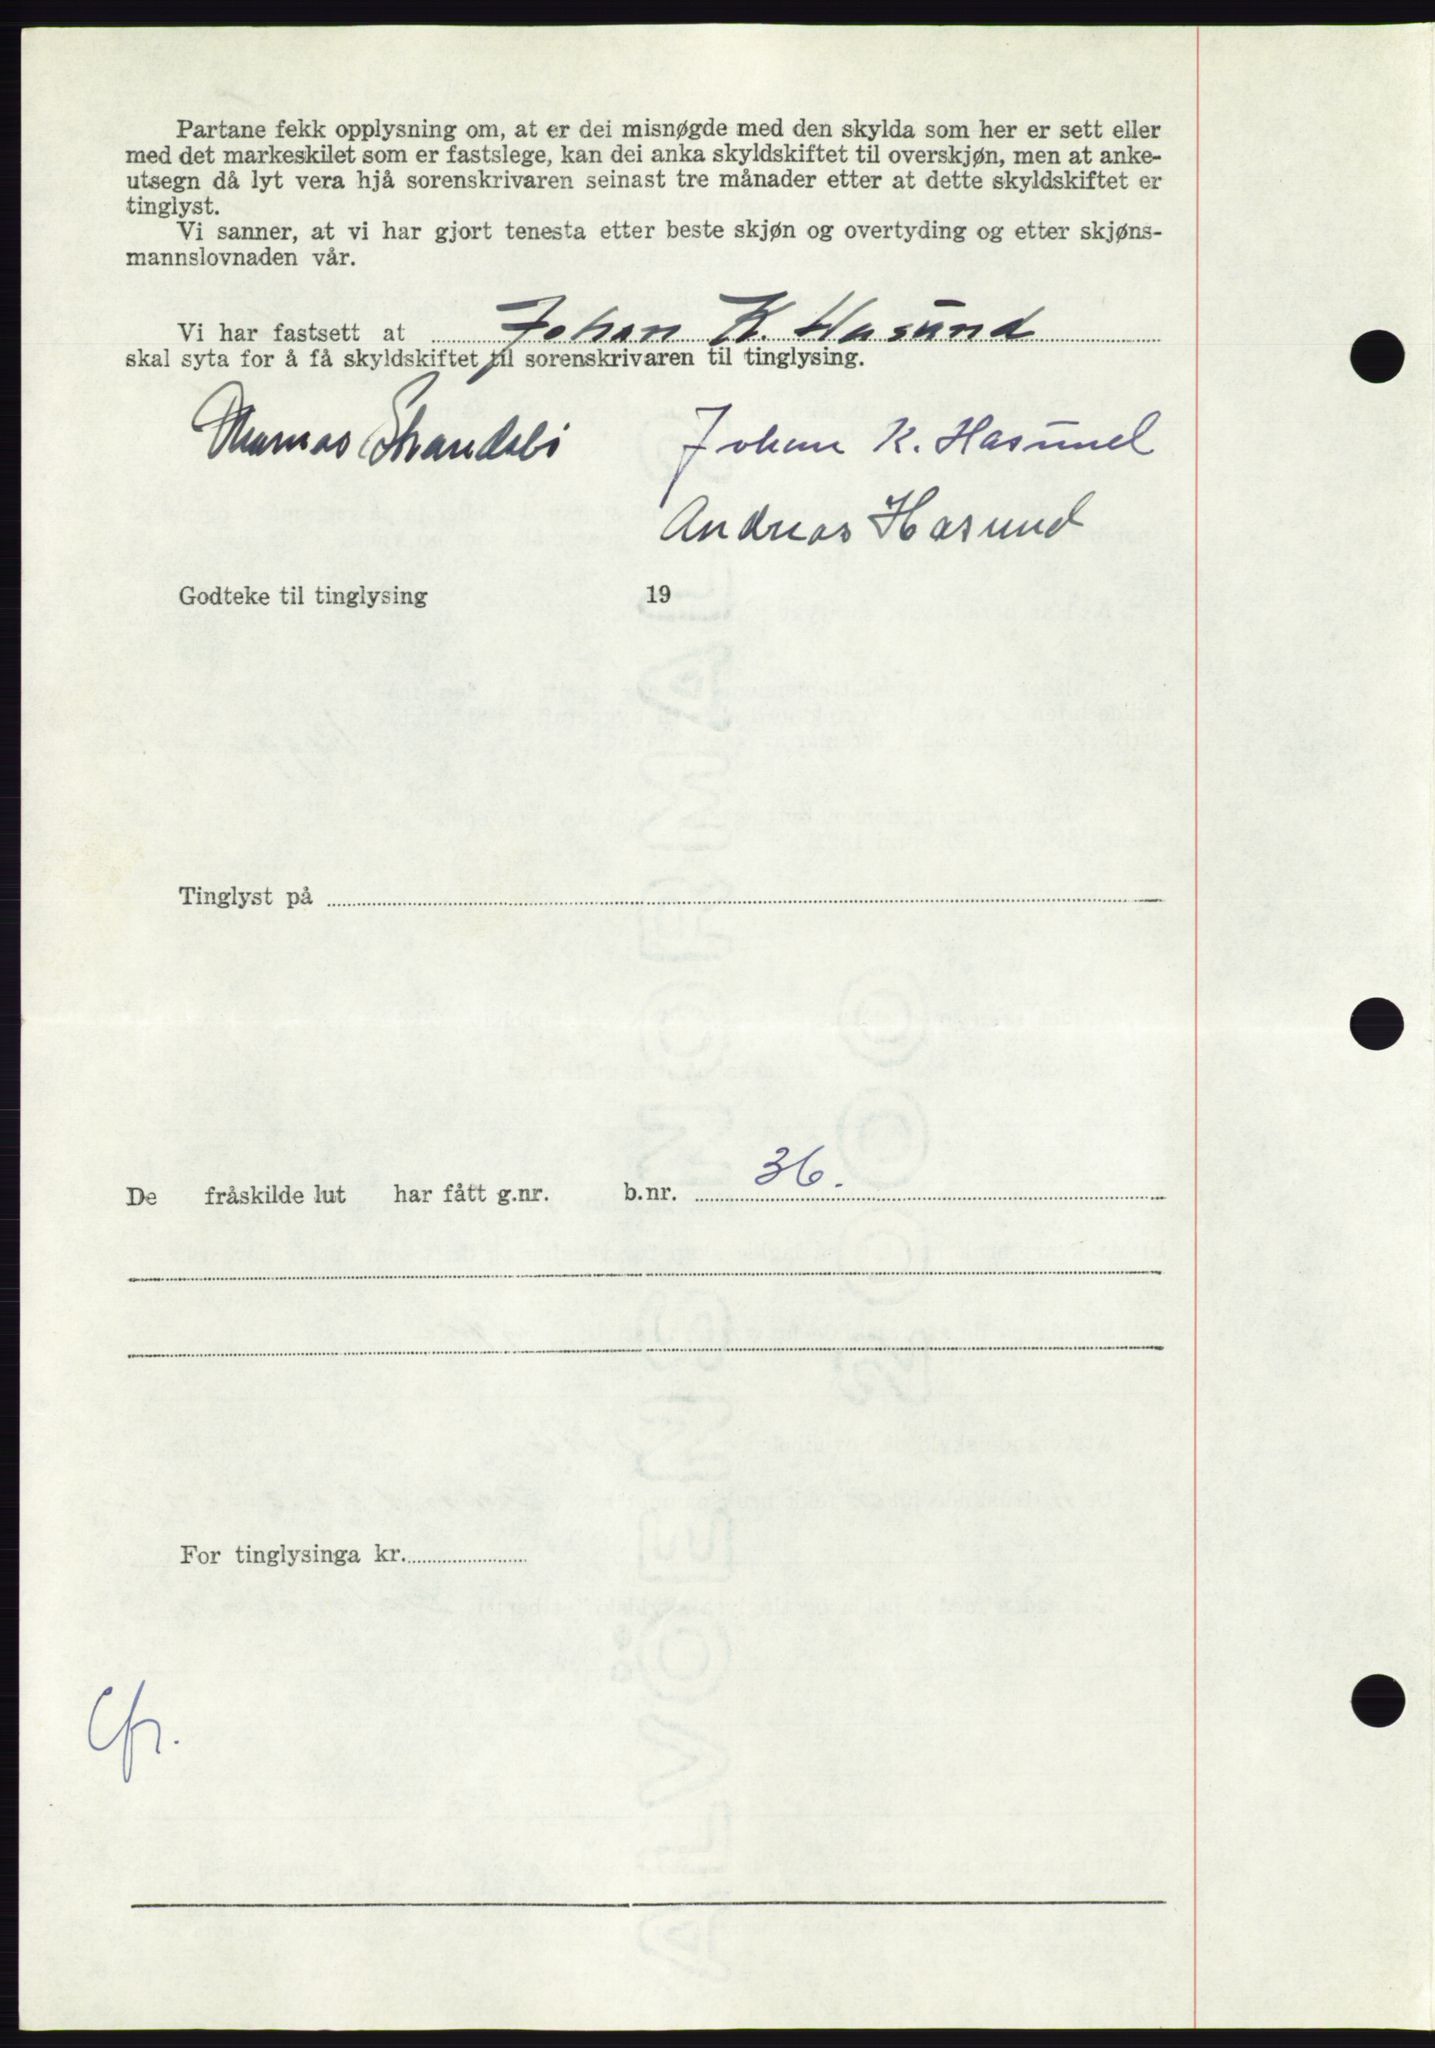 Partane fekk opplysning om, at er dei misnøgde med den skylda som her er sett eller
med det markeskilet som er fastslege, kan dei anka skyldskiftet til overskjøn, men at anke-
utsegn då lyt vera hjå sorenskrivaren seinast tre månader etter at dette skyldskiftet er
tinglyst.
Vi sanner, at vi har gjort tenesta etter beste skjøn og overtyding og etter skjøns-
mannslovnaden vår.
Vi har fastsett at Johan K. Hasund
skal syta for å få skyldskiftet til sorenskrivaren til tinglysing.
Thomas Strandabø Johan K. Hasund
Andreas Hasund
Godteke til tinglysing 19
Tinglyst på
De fråskilde lut har fått g.nr. b.nr. 36.
For tinglysinga kr.
Cfr.